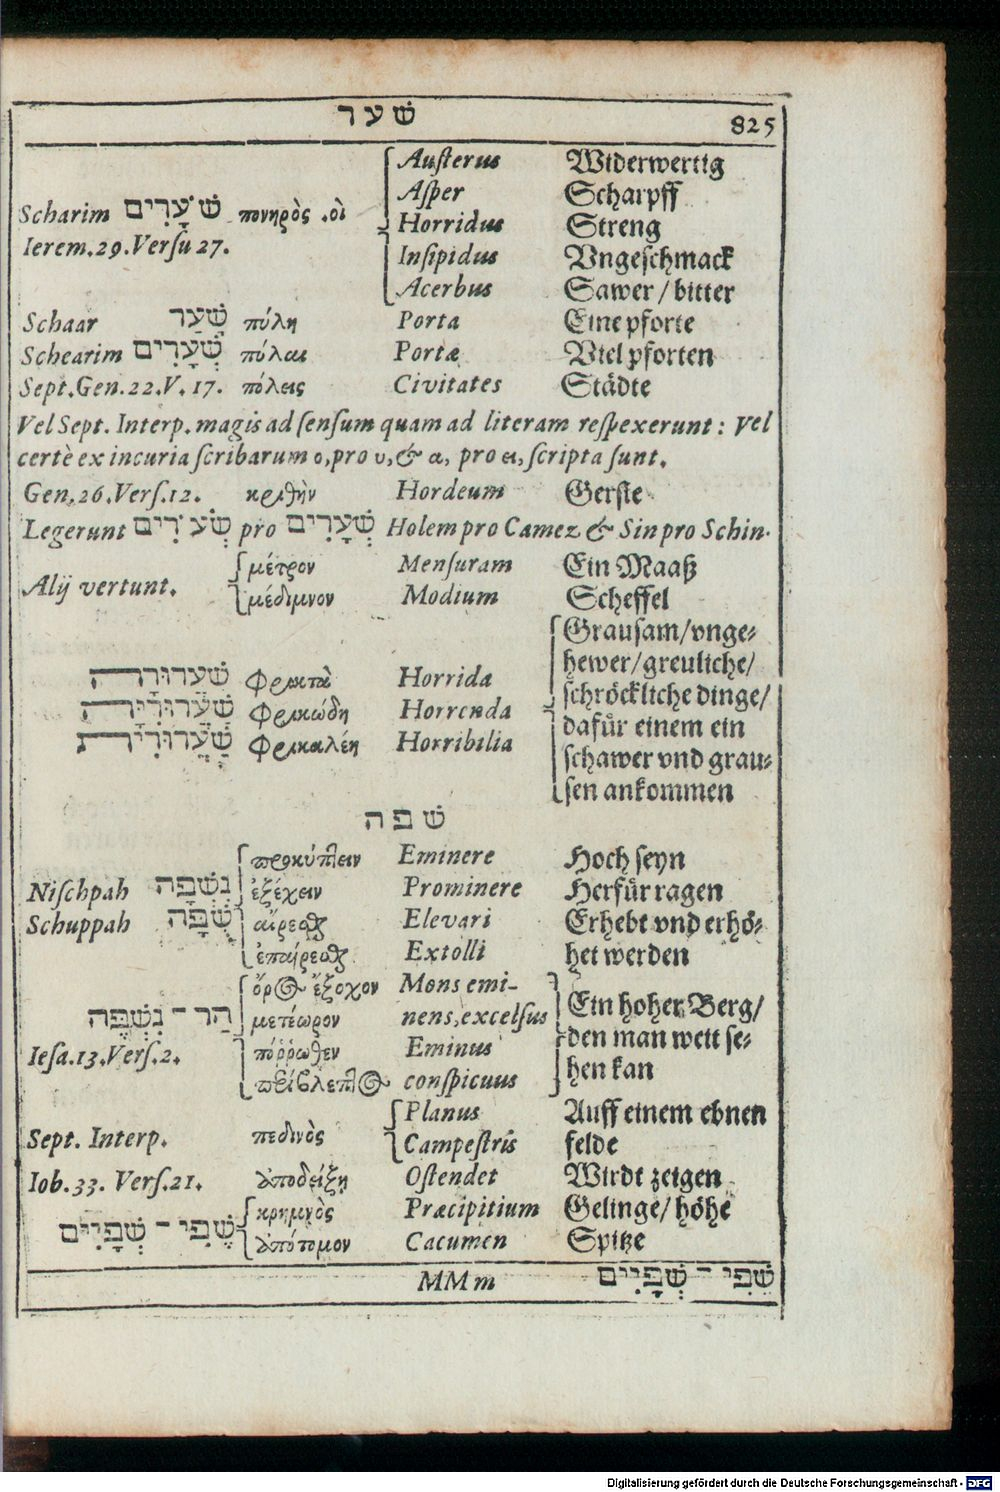 שער 825
Austerus Widerwertig
Asper Scharpff
Scharim שֹׁעָרִים πονηρὸς .οὶ Horridus Streng
Ierem.29.Versu 27. Insipidus Vngeschmack
Acerbus Sawer / bitter
Schaar שַׁעַר πύλη Porta Eine pforte
Schearim שְׁעָרִים πύλαι Portæ Viel pforten
Sept.Gen.22.V.17. πόλεις Civitates Städte
Vel Sept. Interp. magis ad sensum quam ad literam respexerunt: Vel
certè ex incuria scribarum ο, pro υ, & α, pro ει, scripta sunt.
Gen.26.Vers.12. κριθὴν Hordeum Gerste
Legerunt שְׂעֹרִים pro שְׁעָרִים Holem pro Camez & Sin pro Schin.
μέτρον Mensuram Ein Maaß
Alij vertunt. μέδιμνον Modium Scheffel
Grausam/vnge-
hewer/greuliche/
שַׁעֲרוּרָה Φρικτὰ Horrida schröckliche dinge/
שַׁעֲרוּרִיָּה Φρικώδη Horrenda dafür einem ein
שַׁעֲרוּרִית Φρικαλέη Horribilia schawer vnd grau-
sen ankommen
שפה
προκύπτειν Eminere Hoch seyn
Nischpah נִשְׁפָּה ἐξέχειν Prominere Herfür ragen
Schuppah שֻׁפָּה αἴρεσθαι Elevari Erhebt vnd erhö-
ἐπαίρεσθαι Extolli het werden
ὄρος ἔξοχον Mons emi- Ein hoher Berg/
הַר־נִשְׁפֶּה μετέωρον nens, excelsus den man weit se-
Iesa.13.Vers.2. πόῤῥωθεν Eminus hen kan
περίβλεπτος conspicuus
Planus Auff einem ebnen
Sept. Interp. πεδινὸς Campestris felde
Iob.33. Vers.21. ἀποδείξη Ostendet Wirdt zeigen
κρημνὸς Præcipitium Gelinge/ höhe
שֶׁפִי־שְׁפָיִים ἀπότομον Cacumen Spitze
MMm שֶׁפִי־שְׁפָיִים
Digitalisierung gefördert durch die Deutsche Forschungsgemeinschaft - DFG